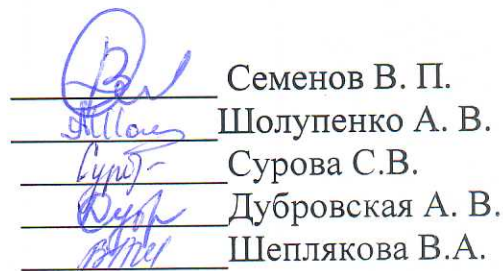 Семенов В. П.
Шолупенко А. В.
Сурова С.В.
Дубровская А. В.
Шеплякова В.А.